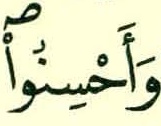 وَأَحْسِنُواْۖ